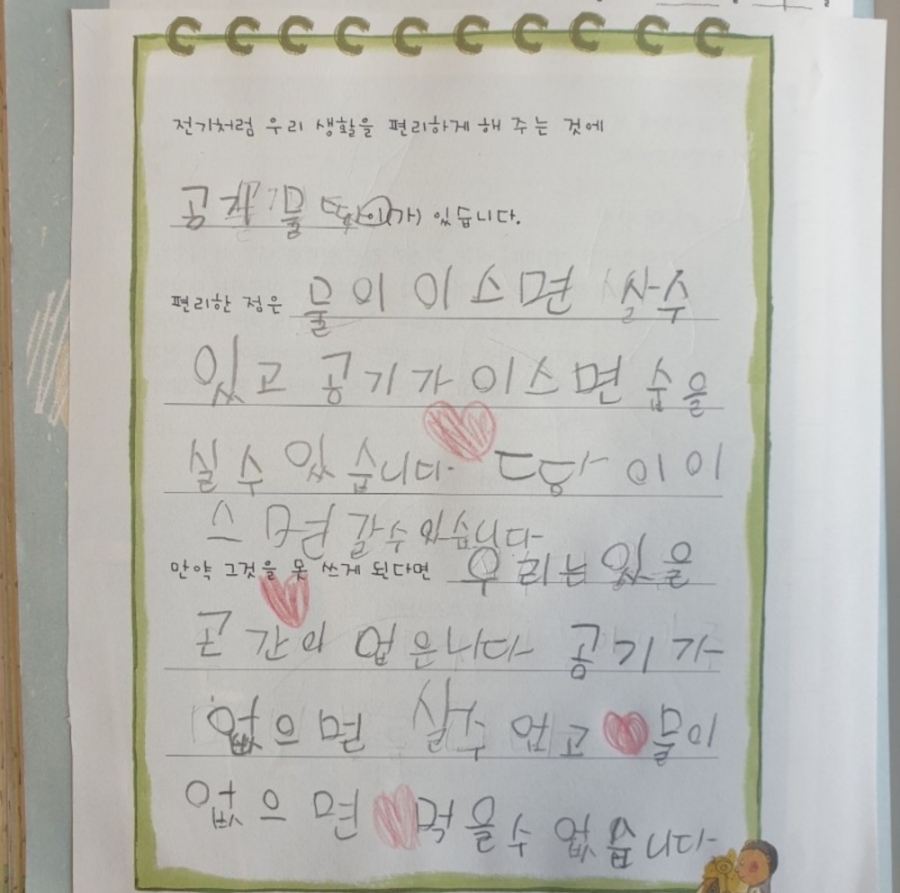 전기처럼 우리 생활을 편리하게 해 주는 것에
공기 물 땅 이(가) 있습니다.
편리한 점은 물이 이스면 살수
있고 공기가 이스면 숨을
실 수 있습니다. 땅이 이
스면 갈수있습니다
만약 그것을 못 쓰게 된다면 우리는 있을
곤간이 업은니다 공기가
없으면 살수 업고 물이
없으면 먹을수 없습니다